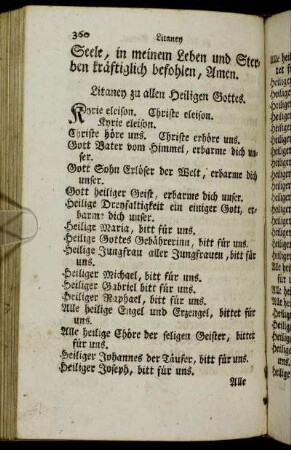 360 Litaney
Seele, in meinem Leben und Ster-
ben kräftiglich befohlen, Amen.
Litaney zu allen Heiligen Gottes.
Kyrie eleison. Christe eleison.
Kyrie eleison.
Christe höre uns. Christe erhöre uns.
Gott Vater vom Himmel, erbarme dich un-
ser.
Gott Sohn Erlöser der Welt, erbarme dich
unser.
Gott heiliger Geist, erbarme dich unser.
Heilige Dreyfaltigkeit ein einiger Gott, er-
barme dich unser.
Heilige Maria, bitt für uns.
Heilige Gottes Gebährerinn, bitt für uns.
Heilige Jungfrau aller Jungfrauen, bitt für
uns.
Heiliger Michael, bitt für uns.
Heiliger Gabriel bitt für uns.
Heiliger Raphael, bitt für uns.
Alle heilige Engel und Erzengel, bittet für
uns.
Alle heilige Chöre der seligen Geister, bittet
für uns.
Heiliger Johannes der Täufer, bitt für uns.
Heiliger Joseph, bitt für uns.
Alle